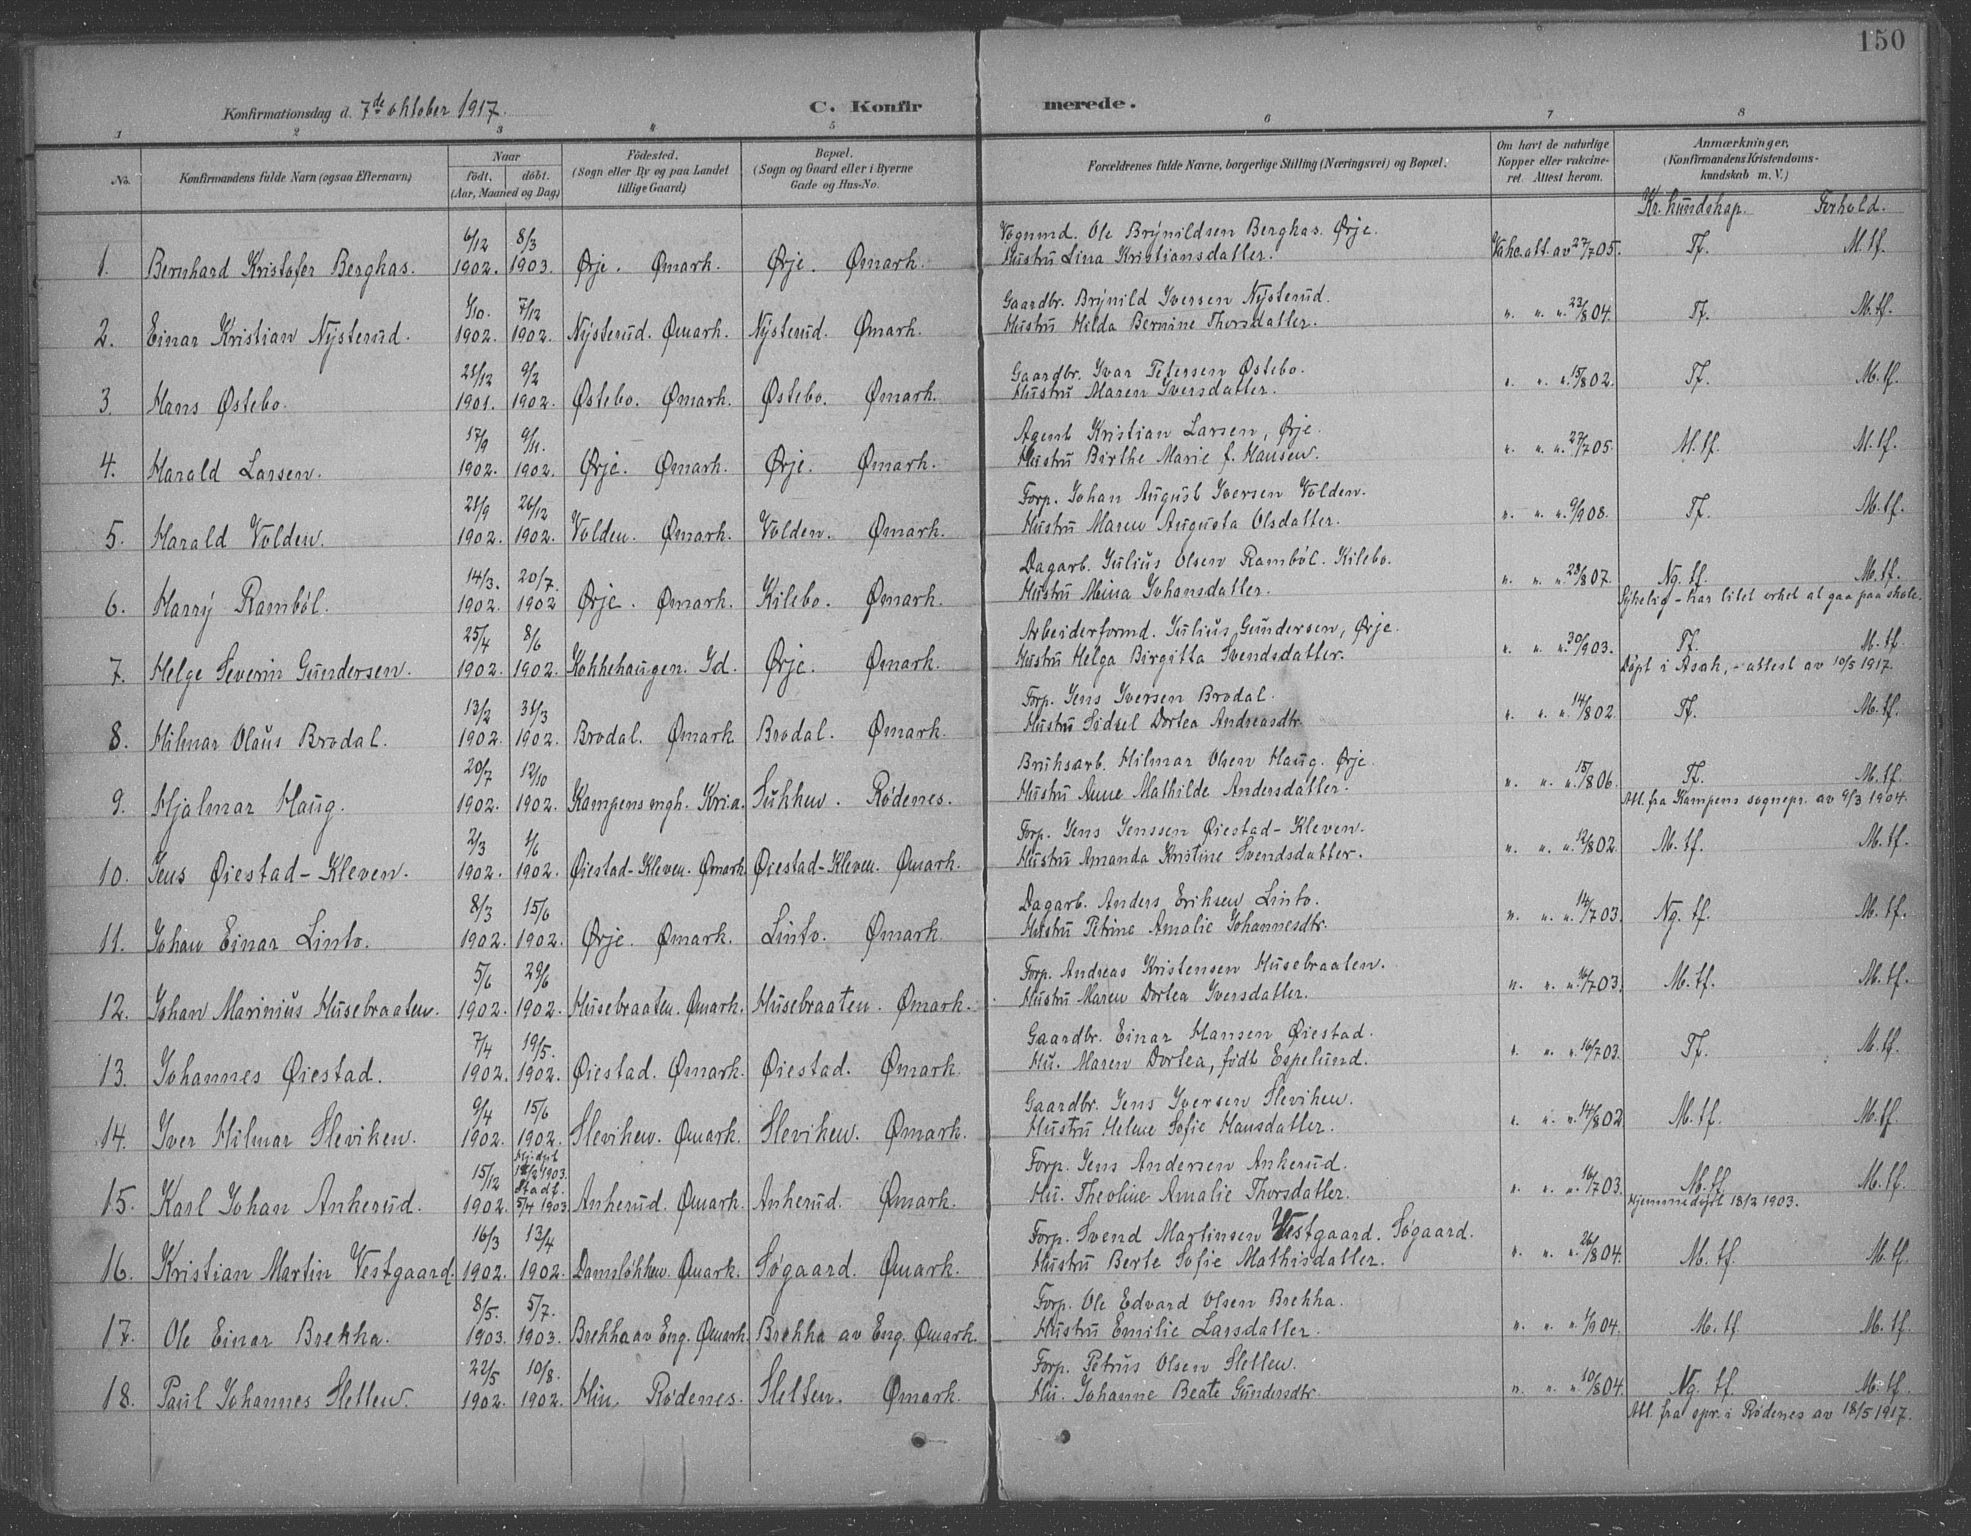 150
Konfirmationsdag d. 7de oktober 1917.
C. Konfirmerede.
1 2 3 4 5 6 7 8
No. Konfirmandens fulde Navn (ogsaa Efternavn) Naar født. døbt. (Aar, Maaned og Dag) Fødested. (Sogn eller By og paa Landet tillige Gaard) Bopæl. (Sogn og Gaard eller i Byerne Gade og Hus-No. Forældrenes fulde Navne, borgerlige Stilling (Næringsvei) og Bopæl. Om havt de naturlige Kopper eller vakcineret. Attest herom. Anmærkninger, (Konfirmandens Kristendomskundskab m. V.)
Kr. kundskap. Forhold.
6/12 8/3 Vognmd. Ole Brynildsen Berghas. Ørje.
1. Bernhard Kristofer Berghas. 1902. 1903. Ørje. Ømark. Ørje. Ømark. Hustru Lina Kristiansdatter. Vakc. att. av 27/7 05. Tf. M.tf.
1/10. 7/12 Gaardbr. Brynild Iversen Nysterud.
2. Einar Kristian Nysterud. 1902. 1902. Nysterud. Ømark. Nysterud. Ømark. Hustru Hilda Bernine Thorsdatter. " " " 23/8 04. Tf. M.tf.
21/12 9/2 Gaardbr. Ivar Petersen Østebo.
3. Hans Østebo. 1901. 1902. Østebo. Ømark. Østebo. Ømark. Hustru Maren Iversdatter. " " " 15/8 02. Tf. M.tf.
17/9 9/11. Agent Kristian Larsen, Ørje.
4. Harald Larsen. 1902. 1902. Ørje. Ømark. Ørje. Ømark. Hustru Birthe Marie f. Hansen. " " " 27/7 05. M.tf. M.tf.
21/9 26/12 Forp. Johan August Iversen Volden.
5. Harald Volden. 1902. 1902. Volden. Ømark. Volden. Ømark. Hustru Maren Augusta Olsdatter. " " " 9/9 08. Tf. M.tf.
14/3. 20/7. Dagarb. Julius Olsen Rambøl. Kilebo.
6. Harry Rambøl. 1902. 1902 Ørje. Ømark. Kilebo. Ømark. Hustru Mina Johansdatter. " " " 28/8 07. Ng. tf. M.tf.
Sykelig - har litet orket at gaa paa skole.
25/4 8/6 Arbeiderformd. Julius Gundersen, Ørje.
7. Helge Severin Gundersen. 1902. 1902. Kokkehaugen. Id. Ørje. Ømark. Hustru Helga Birgitta Svendsdatter. " " " 30/9 03. Tf. M.tf.
Døpt i Asak, - attest av 10/5 1917.
13/2 31/3 Forp. Jens Iversen Brodal.
8. Hilmar Olaus Brodal. 1902. 1902. Brodal. Ømark Brodal. Ømark. Hustru Sidsel Dortea Andreasdtr. " " " 14/8 02. Tf. M.tf.
20/7 12/10 Bruksarb. Hilmar Olsen Haug. Ørje
9. Hjalmar Haug. 1902. 1902. Kampens mgh. Kria. Sukken. Rødenes. Hustru Anne Mathilde Andersdatter. " " " 15/8 06. Tf. M.tf.
Att. fra Kampens sognepr. av 9/3 1904.
2/3 1/6 Forp. Jens Jenssen Øiestad-Kleven.
10. Jens Øiestad-Kleven. 1902. 1902. Øiestad-Kleven. Ømark. Øiestad-Kleven. Ømark. Hustru Amanda Kristine Svendsdatter. " " " 12/8 02. M.tf. M.tf.
8/3 15/6 Dagarb. Anders Eriksen Linto.
11. Johan Einar Linto. 1902. 1902. Ørje. Ømark. Linto. Ømark. Hustru Petrine Amalie Johannesdtr. " " " 14/7 03. Ng. tf. M.tf.
5/6 29/6 Forp. Andreas Kristensen Husebraaten.
12. Johan Marinius Husebraaten. 1902. 1902. Husebraaten. Ømark. Husebraaten. Ømark. Hustru Maren Dortea Iversdatter. " " " 16/7 03. M.tf. M.tf.
7/4 19/5. Gaardbr. Einar Hansen Øiestad.
13. Johannes Øiestad. 1902. 1902. Øiestad. Ømark. Øiestad. Ømark. Hu. Maren Dortea, født Espelund. " " " 16/7 03. Tf. M.tf.
9/4 15/6 Gaardbr. Jens Iversen Sleviken.
14. Iver Hilmar Sleviken. 1902. 1902. Sleviken. Ømark. Sleviken. Ømark. Hustru Helene Sofie Hansdatter. " " " 14/8 02 M.tf. M.tf.
15/12 Hj. dpt 18/2 1903. Stadf. Forp. Jens Andersen Ankerud.
15. Karl Johan Ankerud. 1902. 5/4 1903. Ankerud. Ømark. Ankerud. Ømark. Hu. Theoline Amalie Thorsdatter. " " " 16/7 03. M.tf. M.tf.
Hjemmedøpt 18/2 1903.
16/3 13/4 Forp. Svend Martinsen Vestgaard. Søgaard.
16. Kristian Martin Vestgaard. 1902. 1902. Damsløkken. Ømark. Søgaard. Ømark. Hustru Berte Sofie Mathisdatter. " " " 26/8 04. M.tf. M.tf.
8/5. 5/7. Forp. Ole Edvard Olsen Brekka.
17. Ole Einar Brekka. 1903. 1903. Brekka av Eng. Ømark. Brekka av Eng. Ømark. Hustru Emilie Larsdatter. " " " 1/9 04. M.tf. M.tf.
22/5 10/8. Forp. Petrus Olsen Sletten.
18. Paul Johannes Sletten. 1902. 1902. Hin Rødenes. Sletten. Ømark. Hu. Johanne Beate Gundersdtr. " " " 10/8 04. Ng. tf. M.tf.
Att. fra spr. i Rødenes av 18/5 1917.